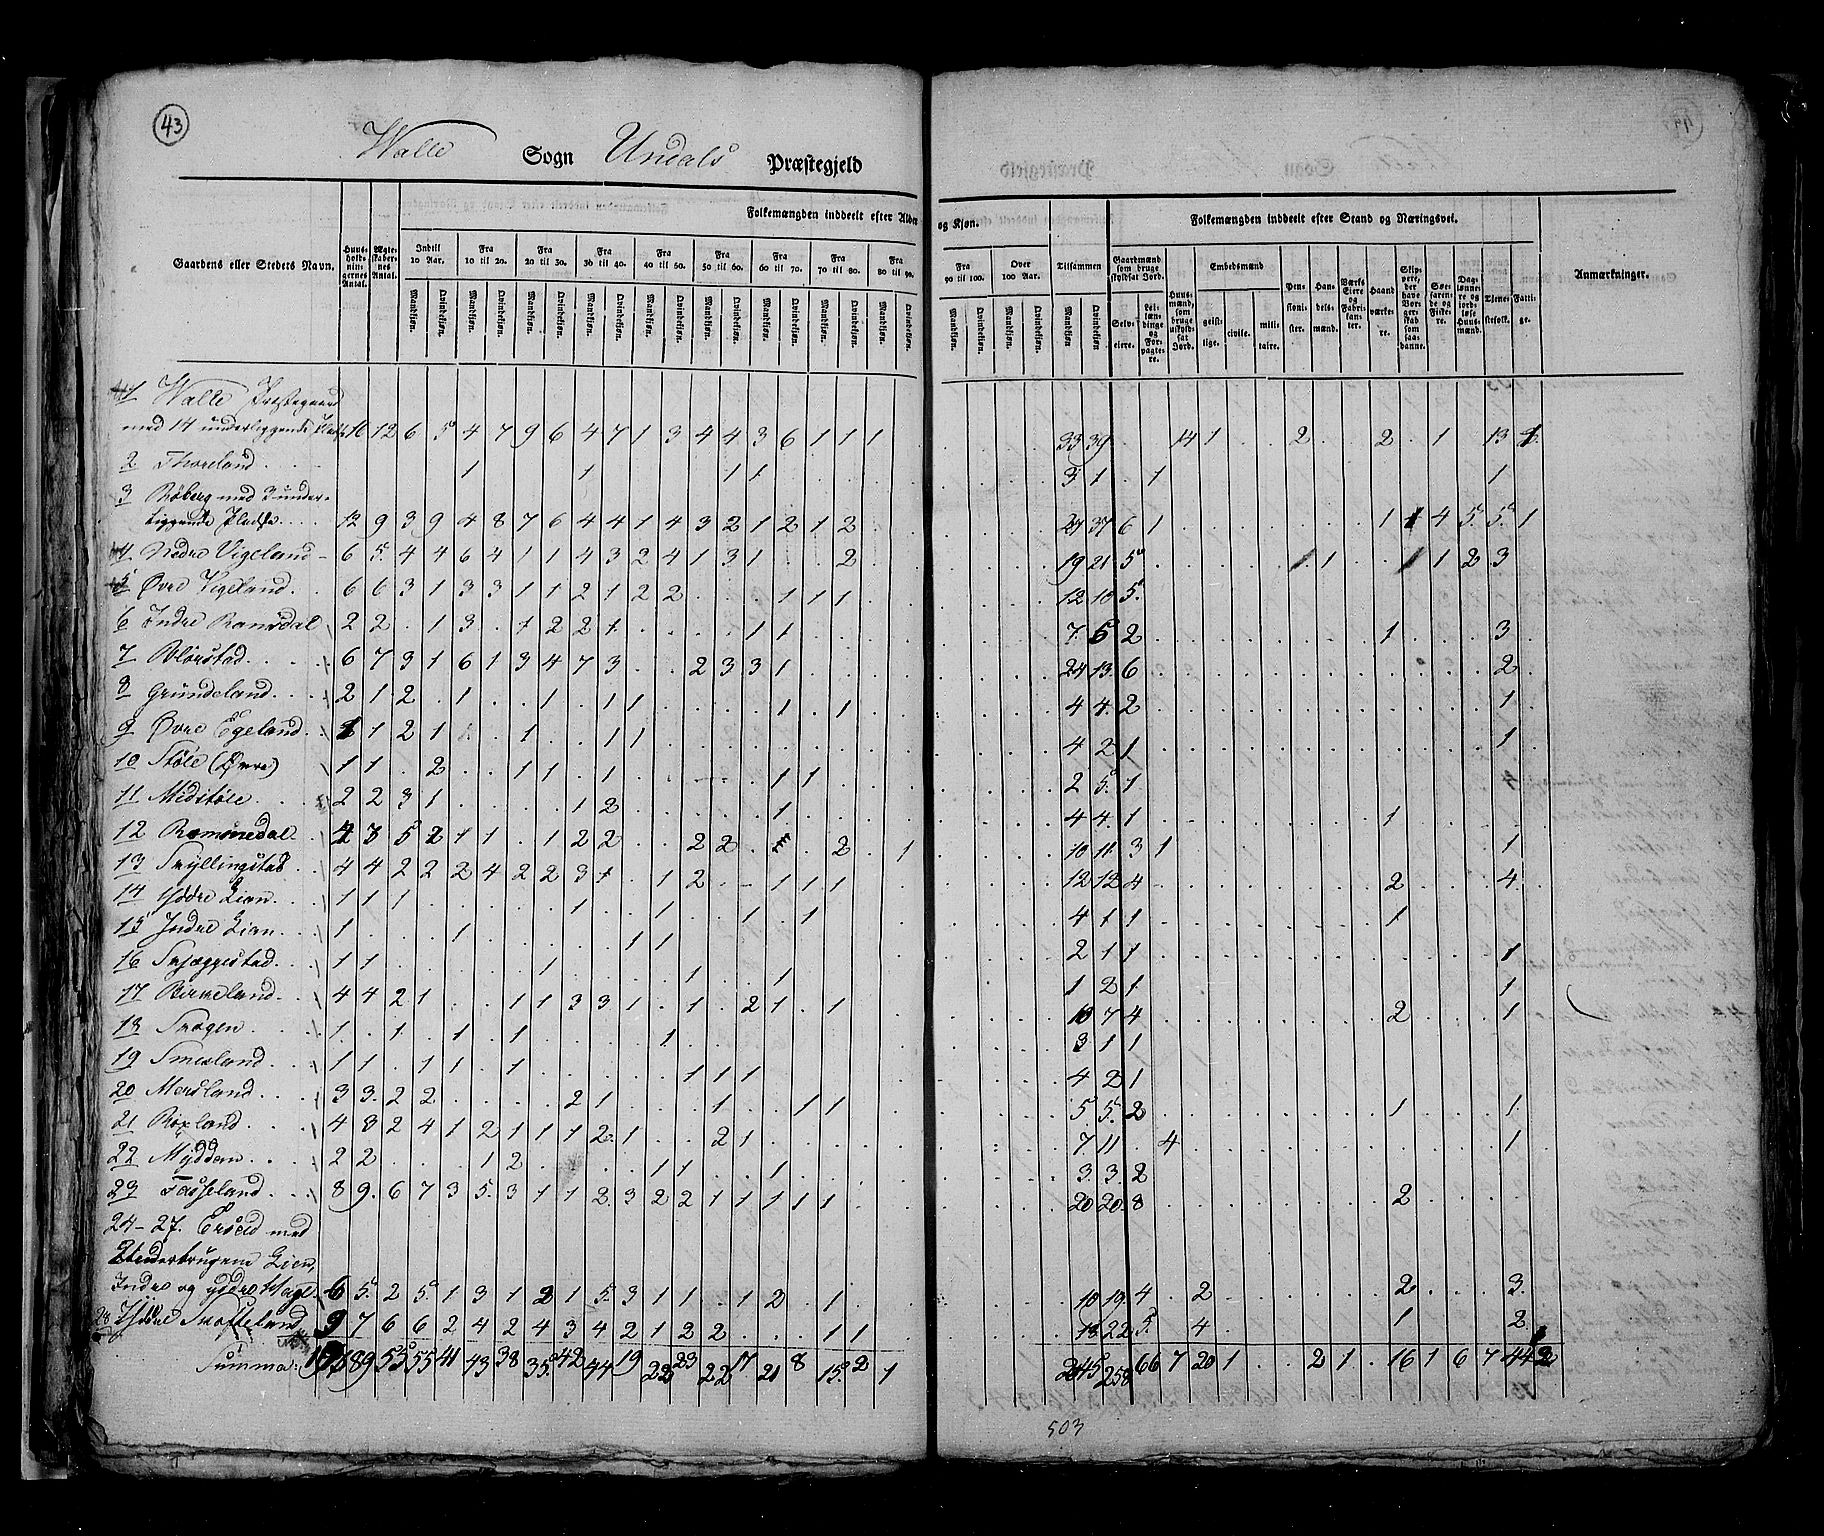 43
Walle Sogn Undals Præstegjeld
Gaardens eller Steders Navn.
Huus-holdningernes Antal.
Ægteskabernes Antal.
Folkemængden inddeelt efter Alder og Kjøn.
Indtil 10 Aar.
Fra 10 til 20.
Fra 20 til 30.
Fra 30 til 40.
Fra 40 til 50.
Fra 50 til 60.
Fra 60 til 70.
Fra 70 til 80.
Fra 80 til 90.
Fra 90 til 100.
Over 100 Aar.
Tilsammen
Mandkjøn. Qvindekjøn.
Folkemængden inddeelt efter Stand og Næringsvei.
Gaardmænd som bruge skyldsat Jord.
Selveiere.
Leilændinge og Forpagtere.
Huusmænd, som bruge uskyldsat Jord.
Embedsmænd
geistlige.
civile.
militaire.
Pensionister.
Handelsmænd.
Værks Eiere og Fabrikanter.
Haandværkere.
Skippere, der have Borgerskab som saadanne.
Søefarende og Fiskere.
Daglønnere og jordløse Huusmænd.
Tjenestefolk.
Fattige.
Anmærkninger.
1 Walle Præstegaard
med 14 underliggende Pladse 16 12 6 5 4 7 9 6 4 7 1 3 4 4 3 6 1 1 1 33 39 14 1 2 2 1 13 1
2 Thoreland 1 1 1 1 3 1 1 1
3 Røberg med 3 under-
liggende Pladse 12 9 3 9 4 8 7 6 4 4 1 4 3 2 1 2 1 2 27 37 6 1 1 1 4 5 5 1
4 Nedre Vigeland 6 5 4 4 6 4 1 1 4 3 2 4 1 3 1 2 19 21 5 1 1 1 1 2 3
5 Øvre Vigeland 6 6 3 1 3 3 1 1 2 1 2 2 1 1 1 12 10 5
6 Indre Ramsdal 2 2 1 3 1 2 2 1 1 1 7 5 2 1 3
7 Blørstad 6 7 3 1 6 1 3 4 7 3 2 3 3 1 24 13 6 2
8 Grundeland 2 1 2 1 1 1 1 1 1 4 4 2 1
9 Øvre Egeland 1 1 2 1 1 1 1 4 2 1 1
10 Støle (Øvre) 1 1 2 1 1 1 1 1 2 5 1
11 Midstøle 2 2 3 1 1 2 1 4 4 1 1
12 Ramsnedal 4 3 5 2 1 1 1 2 2 2 2 2 1 10 11 3 1 1
13 Skyllingstad 4 4 2 2 2 4 2 2 3 1 1 2 1 1 1 12 12 4 2 4
14 Yddre Lian 1 1 1 1 1 1 1 4 1 1 1
15 Indre Lian 1 1 1 1 2 1 1 1
16 Skjæggestad 1 1 1 1 1 1 2 1 1
17 Birkeland 4 4 2 1 1 1 3 3 1 1 2 1 1 10 7 4 2 1
18 Skogen 1 1 1 1 1 3 1 1
19 Smesland 1 1 1 1 1 1 1 1 4 2 1
20 Mersland 3 3 2 2 2 1 1 1 1 5 5 2 1 1
21 Røxland 4 3 2 4 1 2 1 1 1 2 1 2 1 7 11 4 1
22 Myddom 2 2 1 2 1 1 1 3 3 2
23 Fasseland 8 9 6 7 3 5 3 1 1 2 3 2 2 1 1 1 1 1 20 20 8 2
24-27. Erseid med
Underbrugene Lien,
Indre og yddre Hage 6 5 2 5 1 3 1 2 1 5 3 1 1 1 2 1 10 19 4 2 2 3
28 Skofteland 9 7 6 6 2 4 2 4 3 4 2 1 2 2 1 1 18 22 5 4 1 2
Summa: 89 53 55 41 43 38 35 42 44 19 23 22 17 21 8 15 2 1 245 258 66 7 20 1 2 1 16 1 6 7 44 2
503